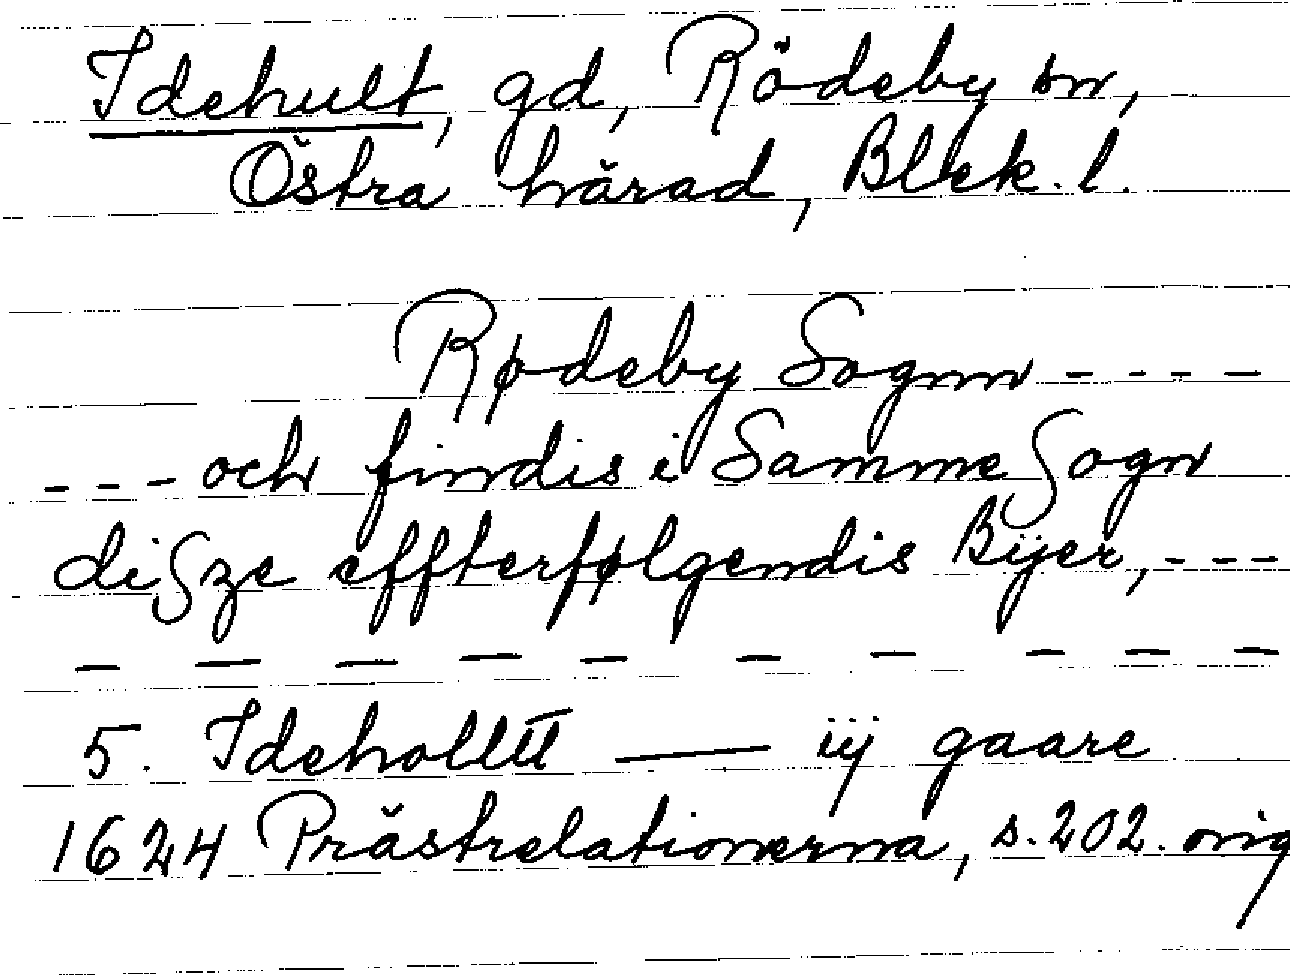 Idehult, gd, Rödeby sn,
Östra härad, Blek. l.
Rødeby Sognn - - - -
- - - och findis i Samme Sogn
diSze effterfølgendis Bÿer, - - -
— — — — — — — — —
5. Ideholltt — iij gaare
1624 Prästrelationerna, s. 202. orig